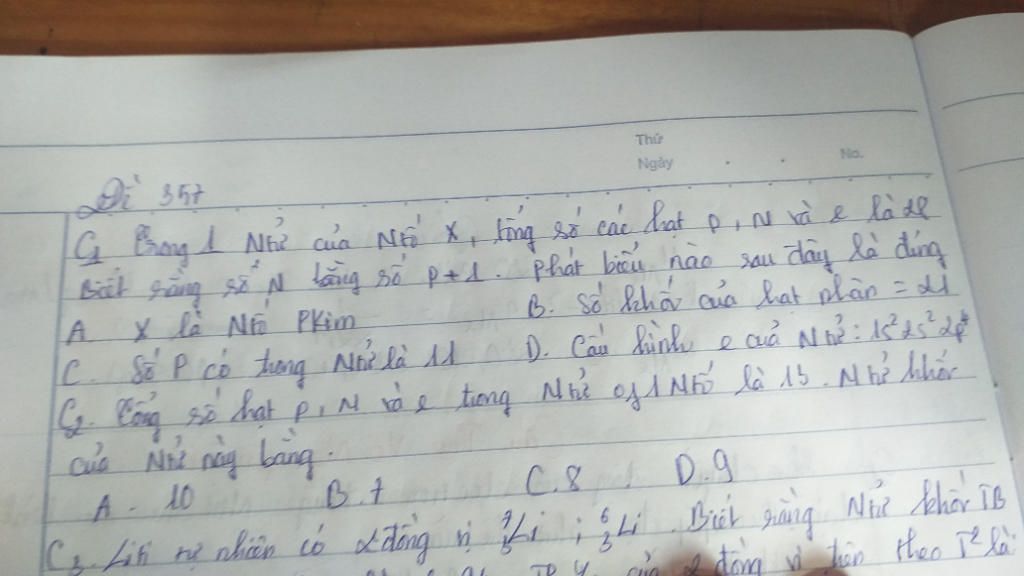 Thứ
Ngày . . No.
Đề 357
C1 Trong 1 Ntử của Ntố X, tổng số các hạt p, N và e là 28
Biết rằng số N bằng số p+1. Phát biểu nào sau đây là đúng
A X là Ntố PKim B. Số khối của hạt nhân = 21
C. Số P có trong Ntử là 11 D. Cấu hình e của Ntử: 1s² 2s² 2p⁴
C2. Tổng số hạt p, N và e trong Ntử of 1 Ntố là 13. Ntử khối
của Ntử này bằng.
A. 10 B. 7 C. 8 D. 9
C3. Liti tự nhiên có 2 đồng vị ⁷₃Li ; ⁶₃Li Biết rằng Ntử khối TB
của 2 đồng vị trên theo T² là